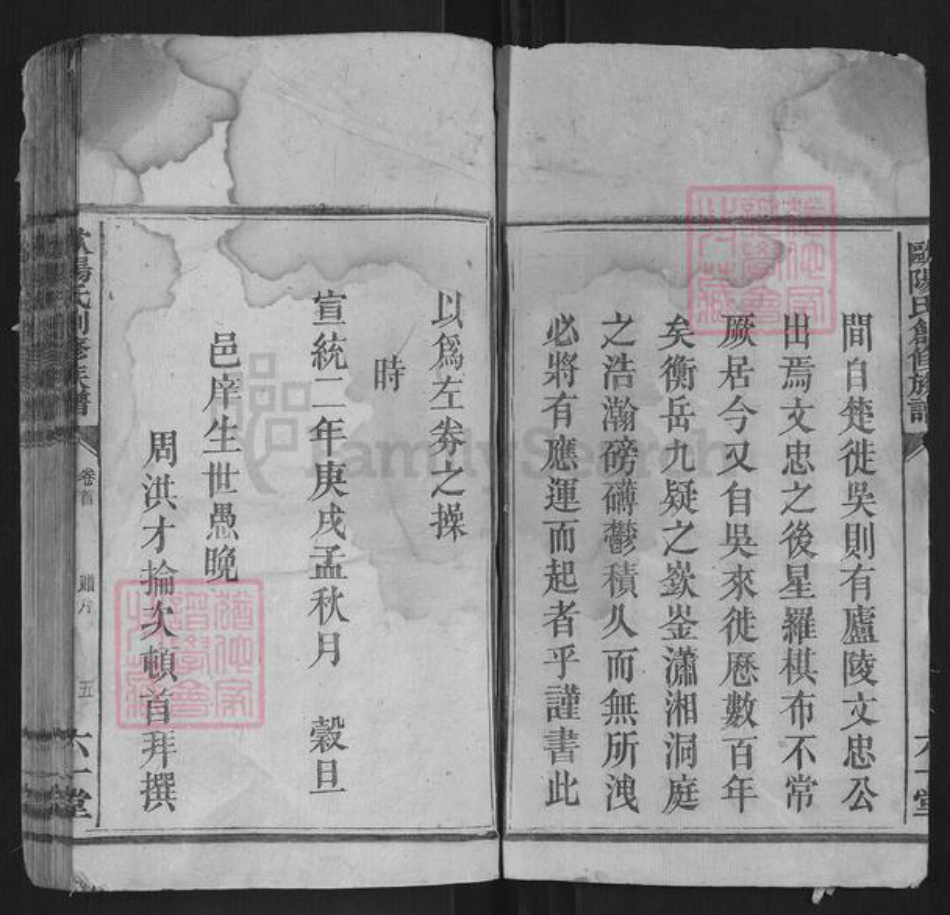 歐陽氏創修族譜
六一堂
間自楚徙吳則有廬陵文忠公
出焉文忠之後星羅棋布不常
厥居今又自吳來徙歷數百年
矣衡岳九疑之嶔崟瀟湘洞庭
之浩瀚磅礴鬱積久而無所洩
必將有應運而起者乎謹書此
以爲左券之操
時
宣統二年庚戌孟秋月 穀旦
邑庠生世愚晚
周洪才掄次頓首拜撰
歐陽氏創修族譜
卷首
五
六一堂
FamilySearch